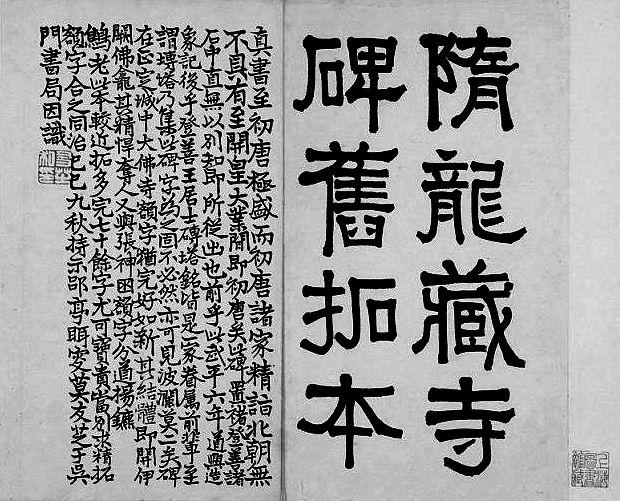 隋龍藏寺
碑舊拓本
真書至初唐極盛而初唐諸家精詣北朝無
不具有至開皇大業間即初唐矣此碑置褚登善諸
石中直無以別知即所從出也前乎此武平六年道興造
象記後乎登善王居士磚塔銘皆是一家眷屬前輩至
謂塼塔乃集此碑字為之固不必然亦可見波瀾莫二矣碑
在正定城中大佛寺額字猶完好如新其結體即開伊
闕佛龕其精悍奪人又與張神冏額字分道揚鑣
老此本較近拓多完七十餘字尤可寶貴當別求精拓
額字合之同治己巳九秋持示郘亭眲叟莫友芝于吳
門書局因識